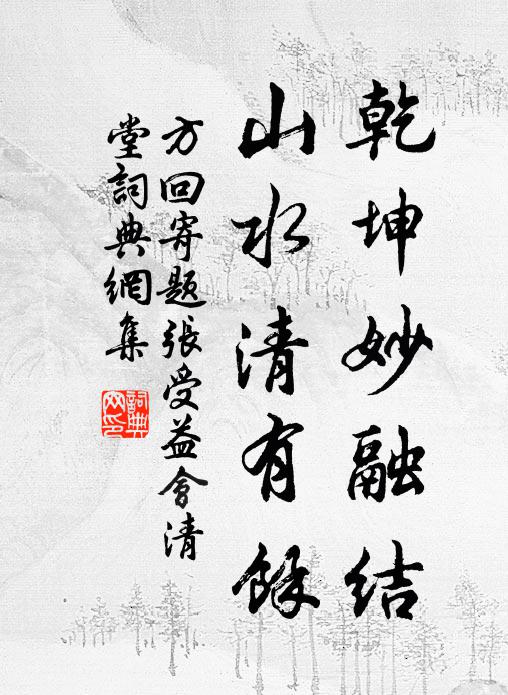 乾坤妙融結
山水清有餘
方回寄題張受益會清
堂詞典網集
詞典
网印